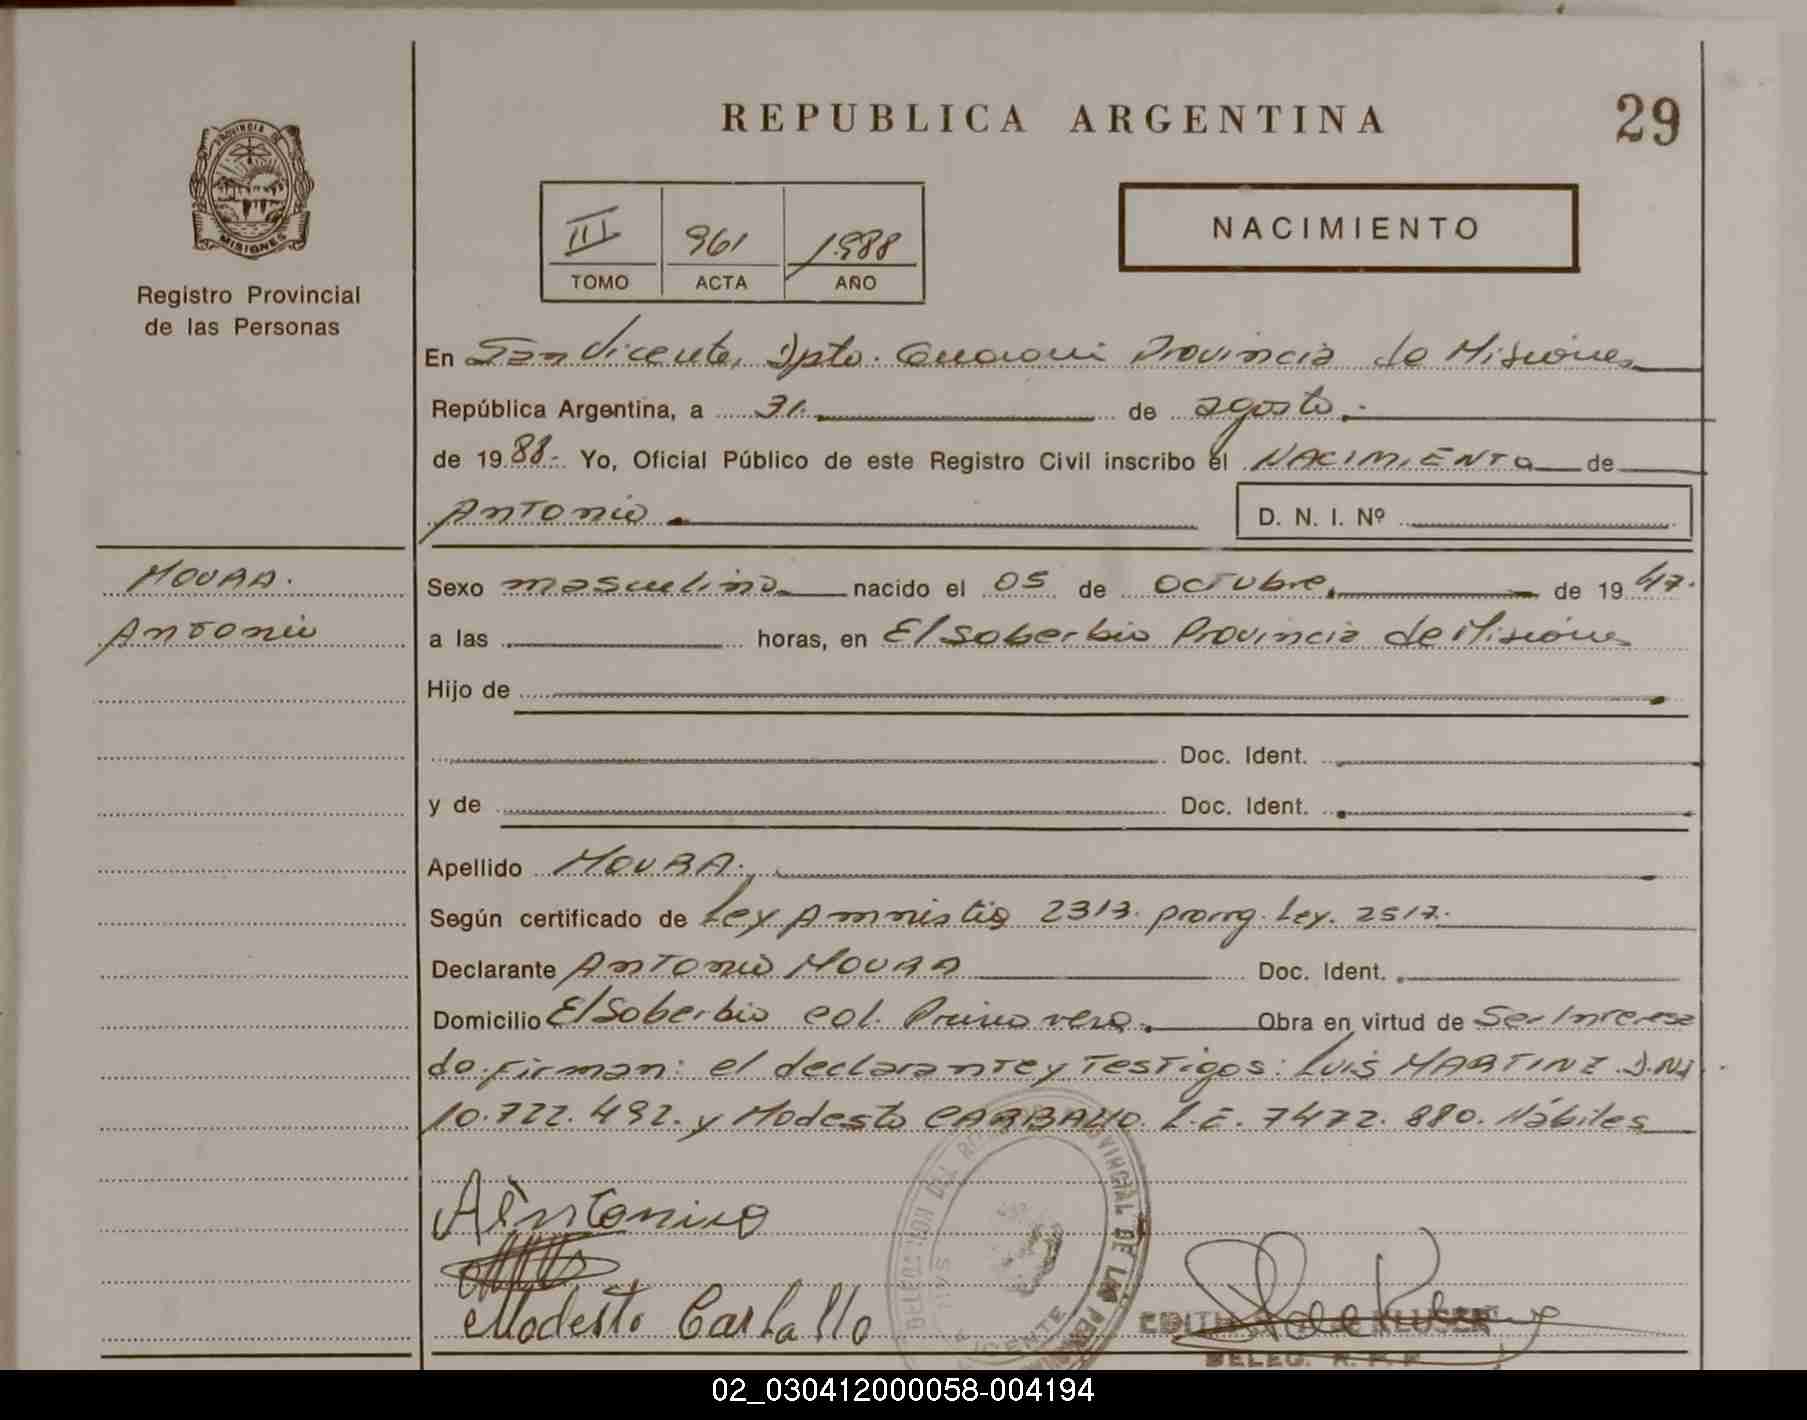 REPUBLICA ARGENTINA
29
PROVINCIA DE
MISIONES
Registro Provincial
de las Personas
III 961 1988
TOMO ACTA AÑO
NACIMIENTO
En San Vicente, Dpto. Guaraní Provincia de Misiones
República Argentina, a 31. de agosto.-
de 1988.- Yo, Oficial Público de este Registro Civil inscribo el NACIMIENTO de
Antonio
D. N. I. Nº
MOURA.
Antonio
Sexo masculino nacido el 05 de octubre, de 1947.
a las horas, en El Soberbio Provincia de Misiones
Hijo de
Doc. Ident.
y de Doc. Ident.
Apellido MOURA.
Según certificado de Ley Amnistia 2313. prorrg. Ley. 2517.
Declarante Antonio MOURA Doc. Ident.
Domicilio El Soberbio col. Primavera. Obra en virtud de Ser Interesa
do. firman: el declarante y Testigos: Luis MARTINZ D.N.I.
10.722.492. y Modesto CARBALLO. L.E. 7472.880. Hábiles
Modesto Carballo
EDITH KLUSER
DELEG. R. P. P.
02_030412000058-004194